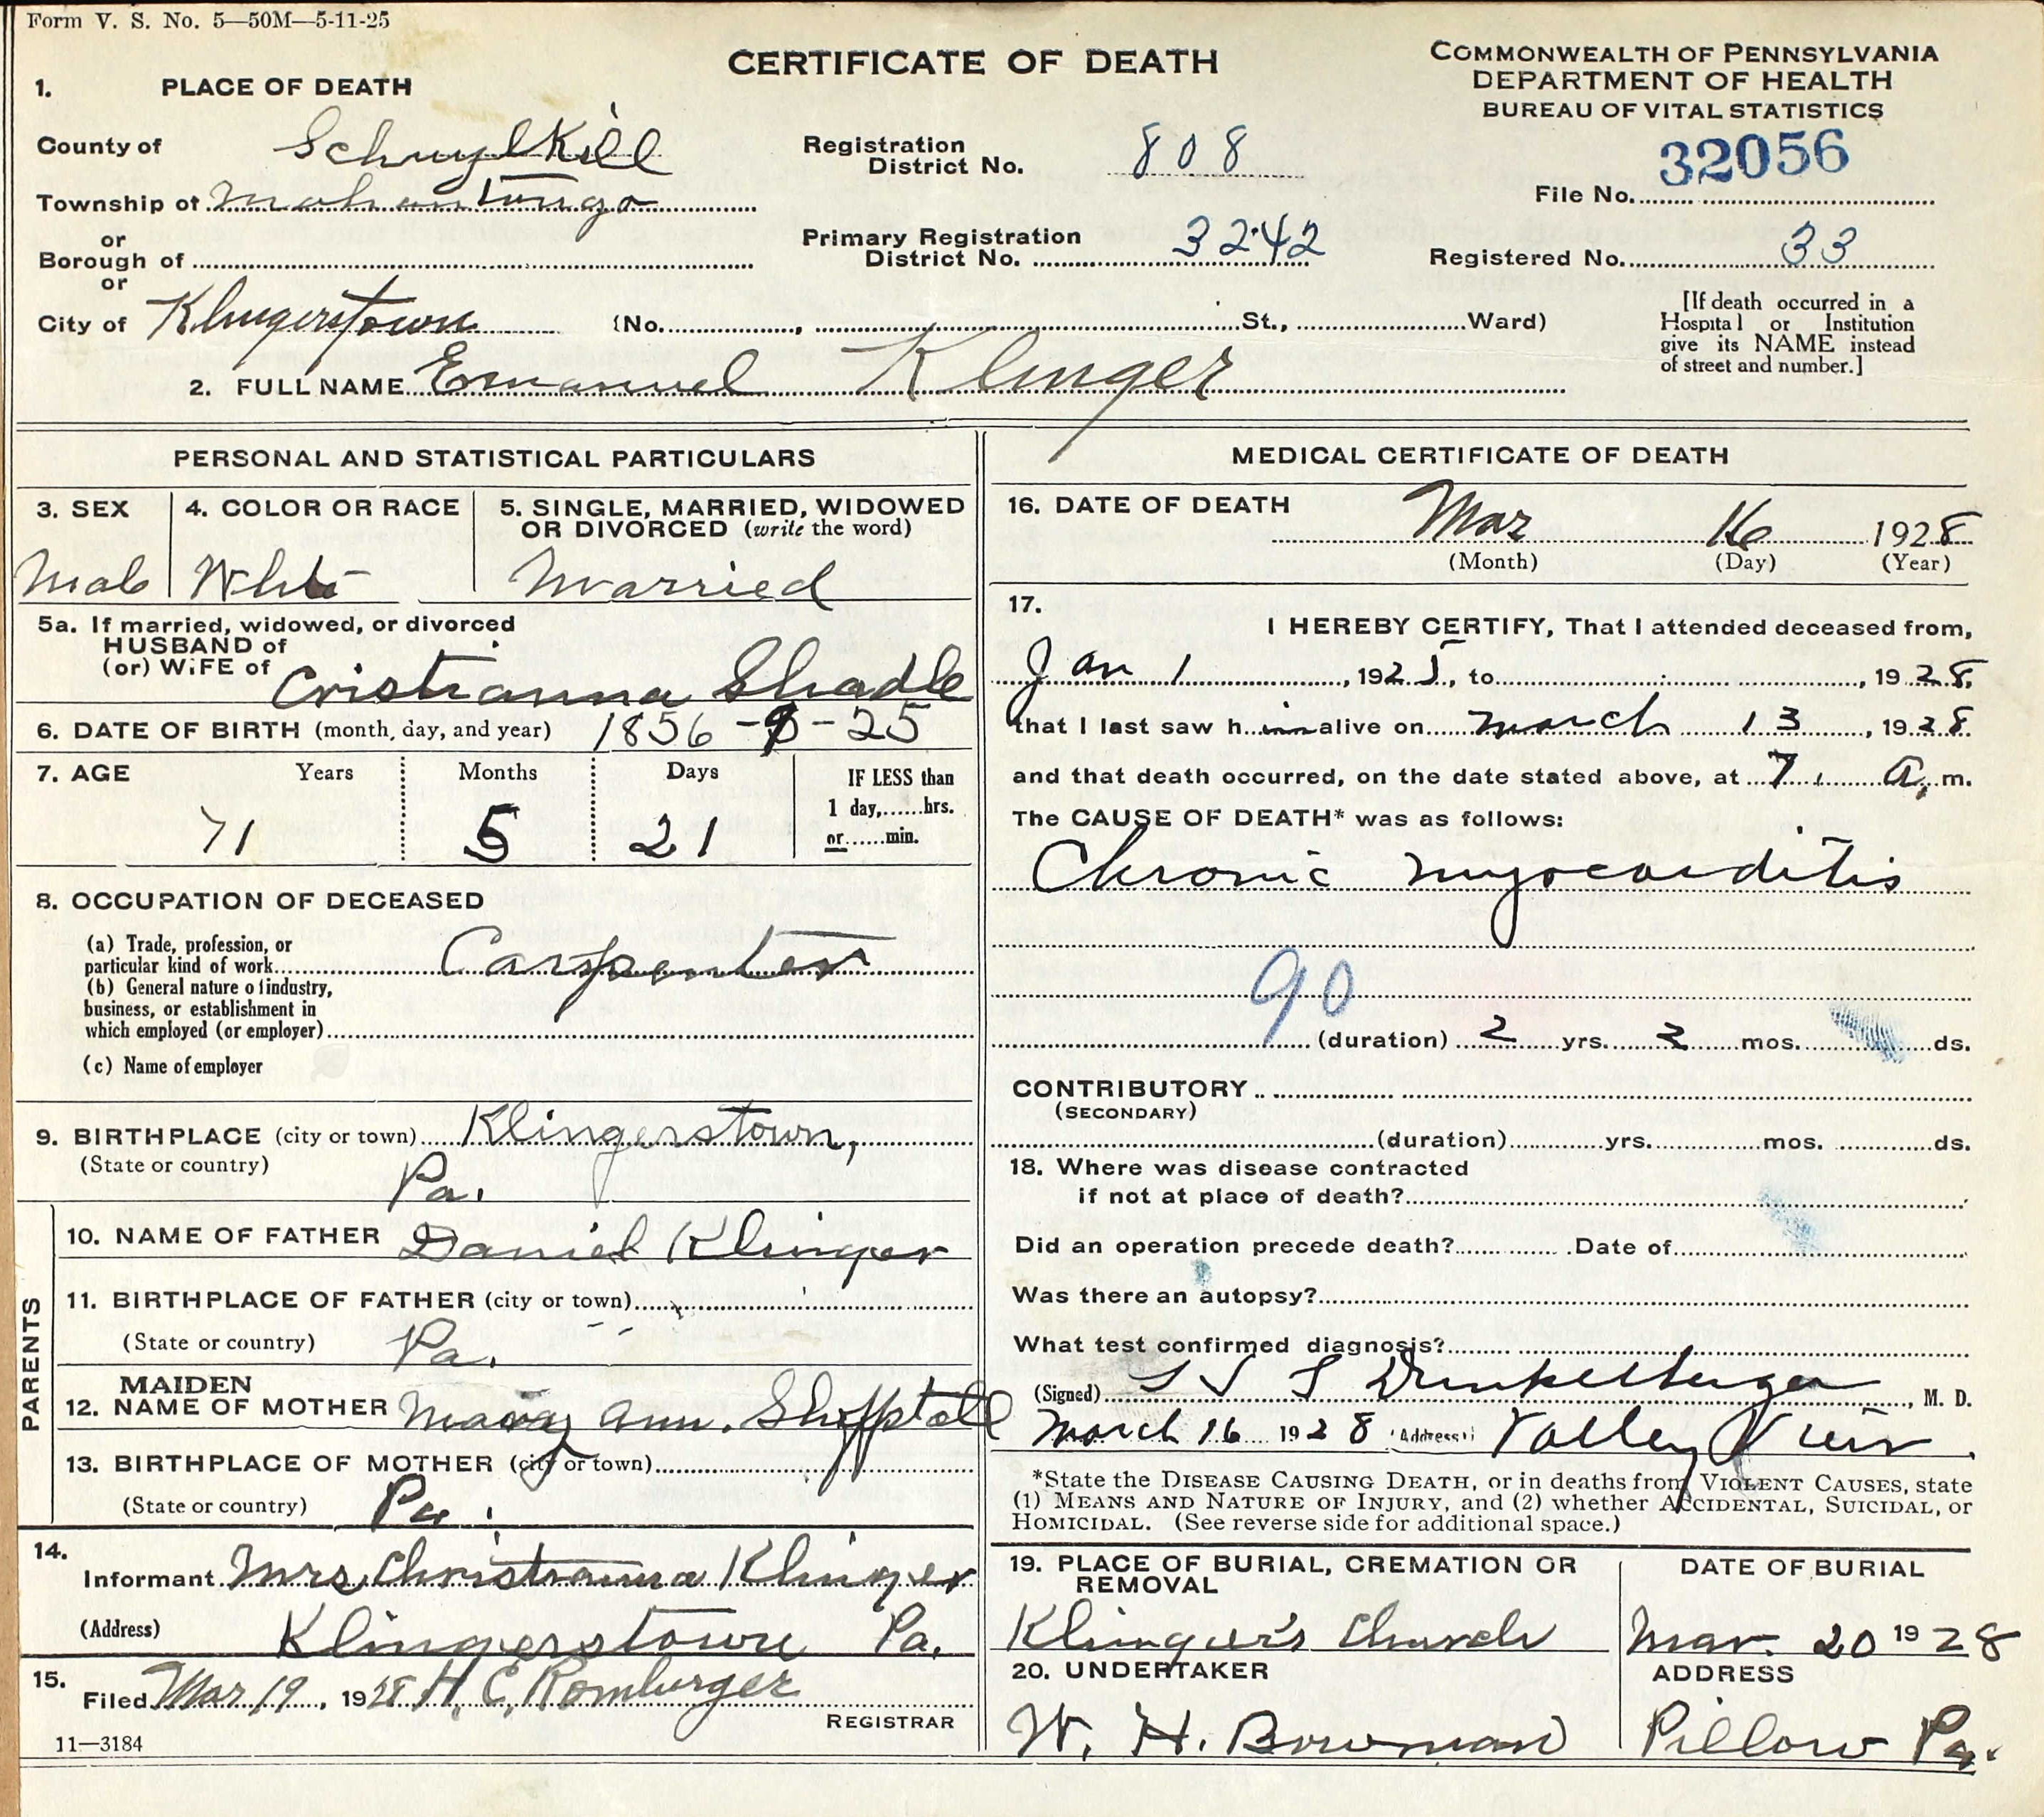 Form V. S. No. 5—50M—5-11-25
CERTIFICATE OF DEATH
COMMONWEALTH OF PENNSYLVANIA
DEPARTMENT OF HEALTH
BUREAU OF VITAL STATISTICS
1. PLACE OF DEATH
County of Schuylkill
Registration District No. 808
File No. 32056
Township of Mahantongo
or
Borough of
Primary Registration District No. 3242
Registered No. 33
or
City of Klingerstown (No. , St., Ward)
[If death occurred in a Hospital or Institution give its NAME instead of street and number.]
2. FULL NAME Emanuel Klinger
PERSONAL AND STATISTICAL PARTICULARS
3. SEX Male
4. COLOR OR RACE White
5. SINGLE, MARRIED, WIDOWED OR DIVORCED (write the word) Married
5a. If married, widowed, or divorced
HUSBAND of
(or) WIFE of Cristianna Shadle
6. DATE OF BIRTH (month, day, and year) 1856-9-25
7. AGE Years 71 Months 5 Days 21
IF LESS than 1 day, hrs. or min.
8. OCCUPATION OF DECEASED
(a) Trade, profession, or particular kind of work Carpenter
(b) General nature of industry, business, or establishment in which employed (or employer)
(c) Name of employer
9. BIRTHPLACE (city or town) Klingerstown,
(State or country) Pa.
PARENTS
10. NAME OF FATHER Daniel Klinger
11. BIRTHPLACE OF FATHER (city or town)
(State or country) Pa.
12. MAIDEN NAME OF MOTHER Mary Ann.
13. BIRTHPLACE OF MOTHER (city or town)
(State or country) Pa.
14. Informant Mrs. Christianna Klinger
(Address) Klingerstown Pa.
15. Filed Mar 19, 1928 H. E. Romburger
REGISTRAR
11—3184
MEDICAL CERTIFICATE OF DEATH
16. DATE OF DEATH Mar 16 1928
(Month) (Day) (Year)
17.
I HEREBY CERTIFY, That I attended deceased from,
Jan 1, 1925, to , 1928,
that I last saw him alive on March 13, 1928.
and that death occurred, on the date stated above, at 7. a, m.
The CAUSE OF DEATH* was as follows:
Chronic myocarditis
90
(duration) 2 yrs. 2 mos. ds.
CONTRIBUTORY
(SECONDARY)
(duration) yrs. mos. ds.
18. Where was disease contracted
if not at place of death?
Did an operation precede death? Date of
Was there an autopsy?
What test confirmed diagnosis?
(Signed) Dunkelberger, M. D.
March 16 1928 (Address) Valley View
*State the DISEASE CAUSING DEATH, or in deaths from VIOLENT CAUSES, state
(1) MEANS AND NATURE OF INJURY, and (2) whether ACCIDENTAL, SUICIDAL, or
HOMICIDAL. (See reverse side for additional space.)
19. PLACE OF BURIAL, CREMATION OR REMOVAL
Klinger's Church
DATE OF BURIAL
Mar. 20 1928
20. UNDERTAKER
W. H. Bowman
ADDRESS
Pillow Pa.